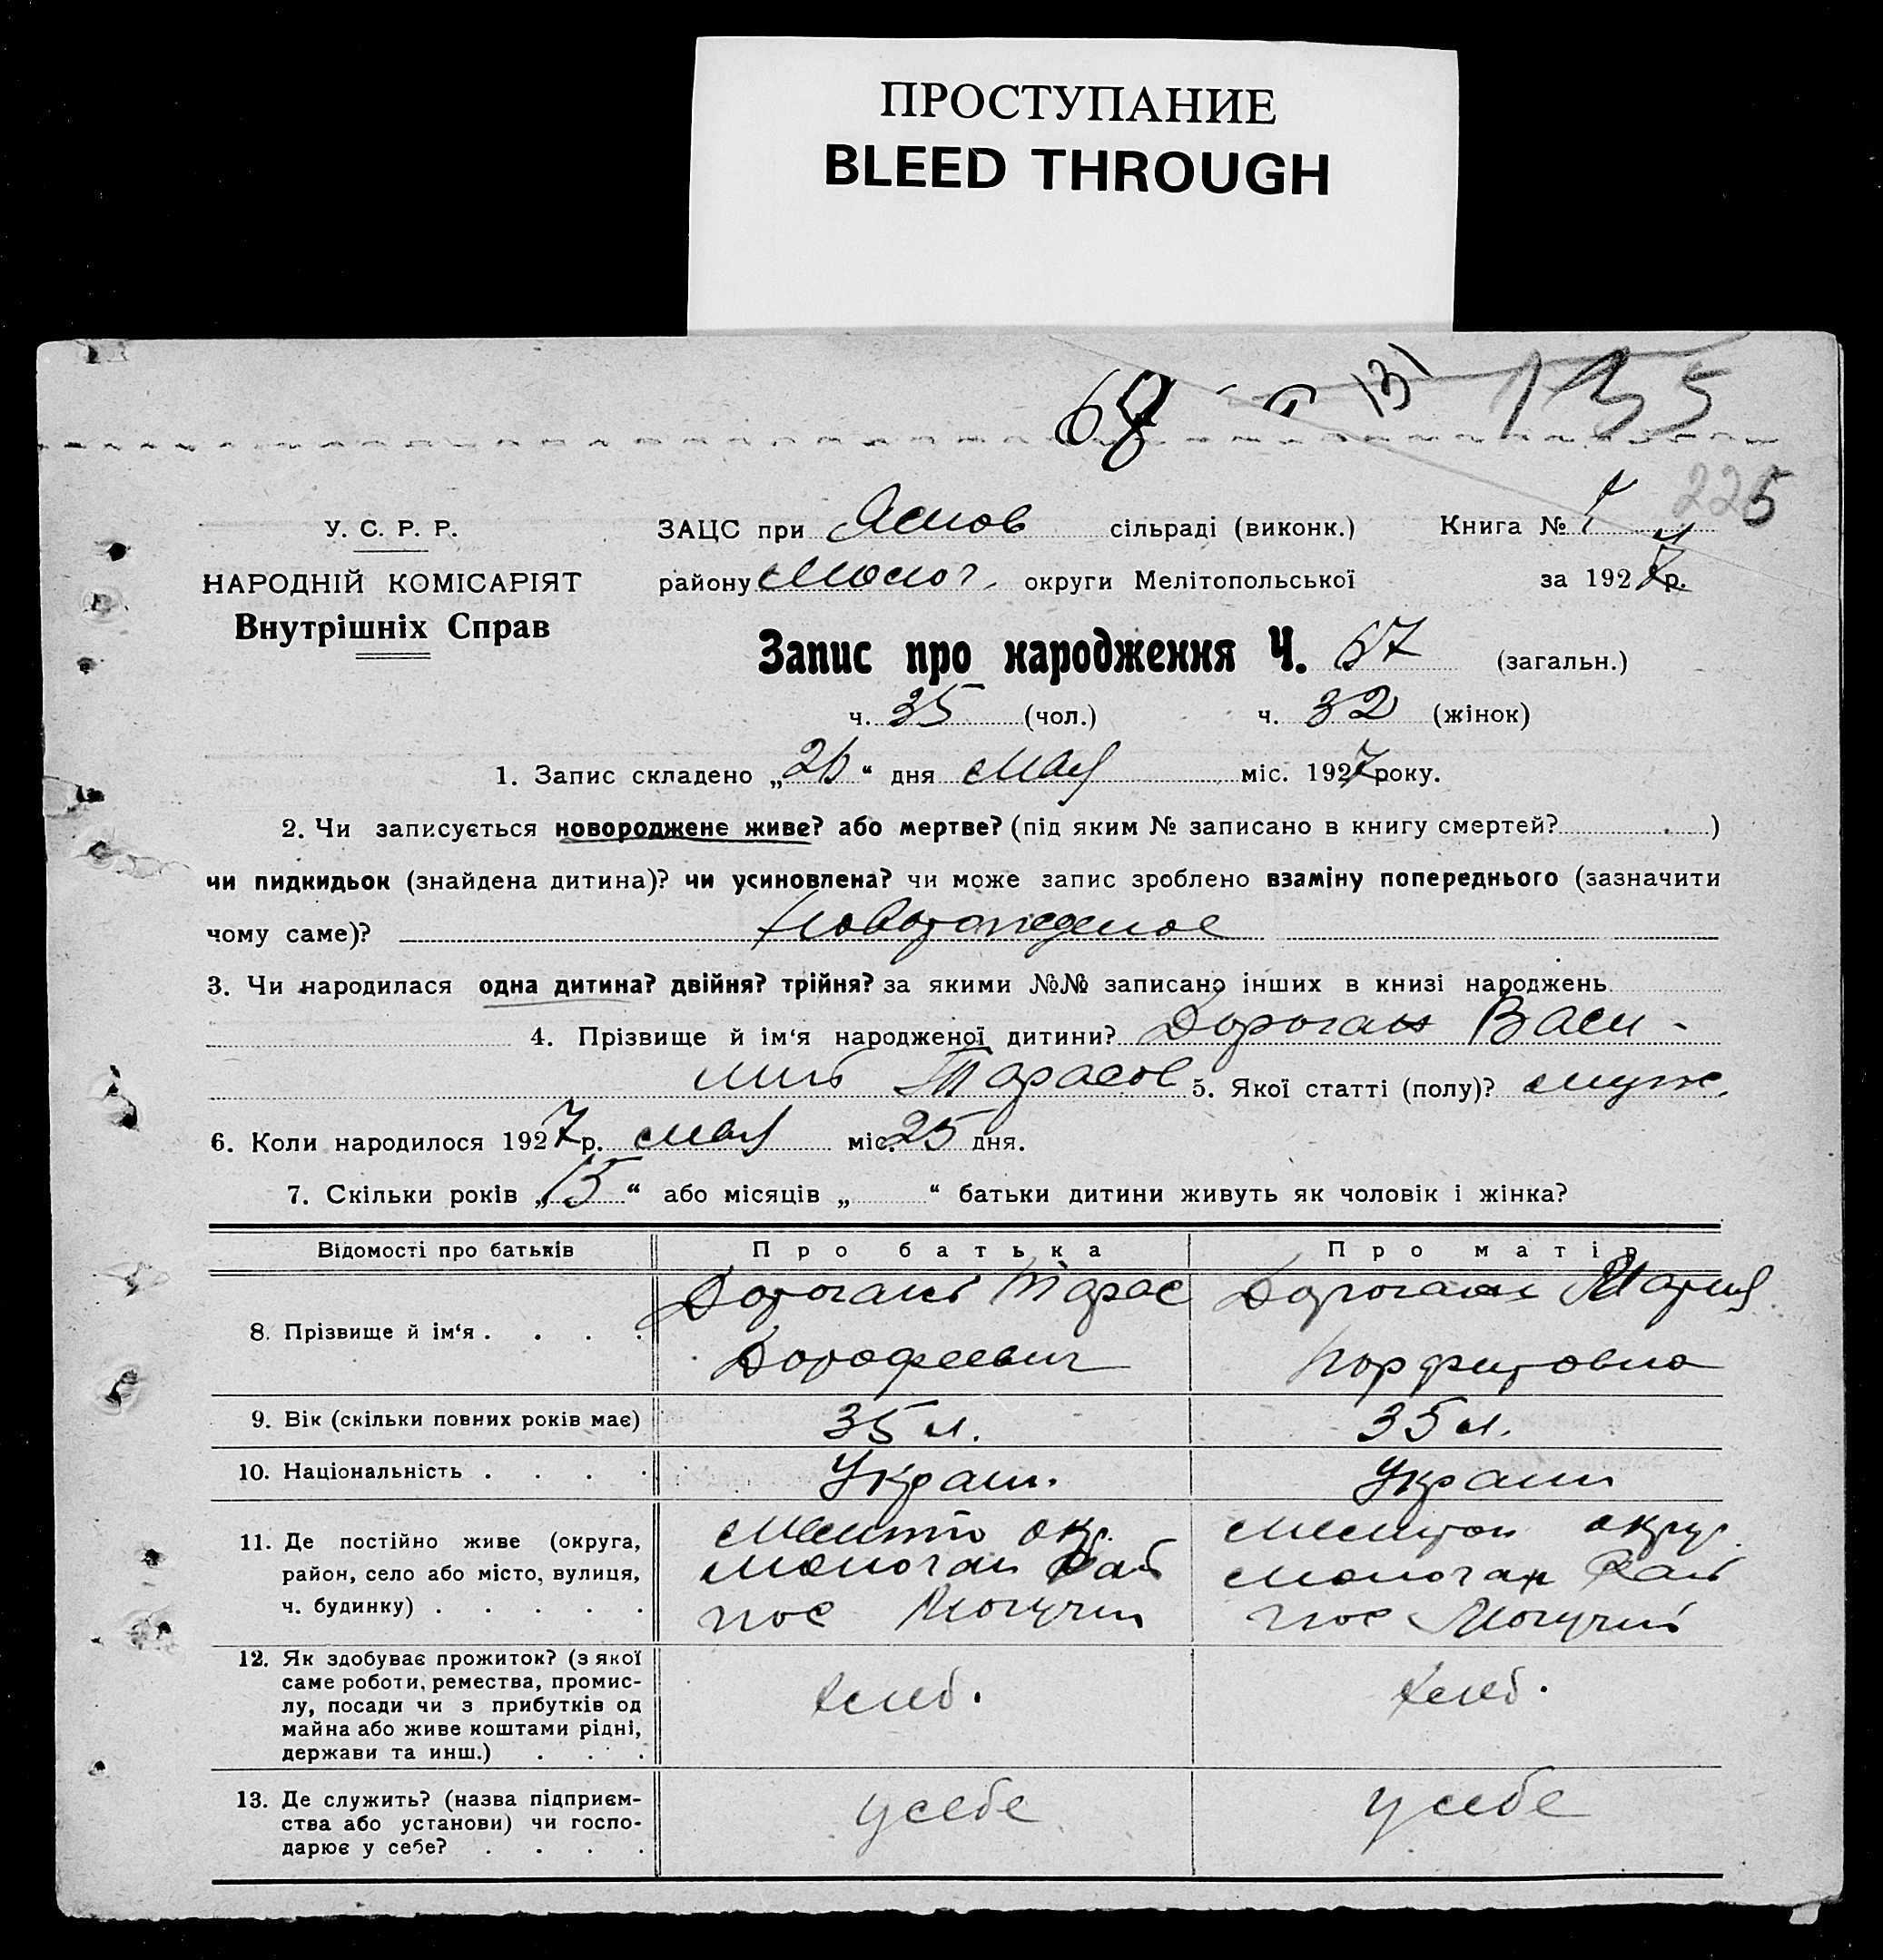 ПРОСТУПАНИЕ
BLEED THROUGH
131 135
225
У. С. Р. Р.
НАРОДНІЙ КОМІСАРІЯТ
Внутрішніх Справ
ЗАЦС при Яснов сільраді (виконк.) Книга №
району Молоч. округи Мелітопольської за 1927 р.
Запис про народження Ч. 67 (загальн.)
ч. 35 (чол.) ч. 32 (жінок)
1. Запис складено „26“ дня мая міс. 1927 року.
2. Чи записується новороджене живе? або мертве? (під яким № записано в книгу смертей? )
чи пидкидьок (знайдена дитина)? чи усиновлена? чи може запис зроблено взаміну попереднього (зазначити
чому саме)? Новорожденое
3. Чи народилася одна дитина? двійня? трійня? за якими №№ записано інших в книзі народжень
4. Прізвище й ім‘я народженої дитини? Дороган Васи-
лий Тарасов 5. Якої статті (полу)? муж.
6. Коли народилося 1927 р. мая міс. 25 дня.
7. Скільки років „15“ або місяців „ “ батьки дитини живуть як чоловік і жінка?
Відомості про батьків Про батька Про матір
8. Прізвище й ім‘я . . . . Дорогань Тарас Дорофеевич Дороган Мария Порфировна
9. Вік (скільки повних років має) 35 л. 35 л.
10. Національність . . . . Украин. Украин
11. Де постійно живе (округа, Мелито окр. Мелитоп округ.
район, село або місто, вулиця, Молочан Рай Молочан Рай
ч. будинку) . . . . . пос Могучий пос Могучий
12. Як здобуває прожиток? (з якої
саме роботи, ремества, промис-
лу, посади чи з прибутків од хлеб. хлеб.
майна або живе коштами рідні,
держави та инш.) . . .
13. Де служить? (назва підприєм-
ства або установи) чи госпо- у себе у себе
дарює у себе? . . . .